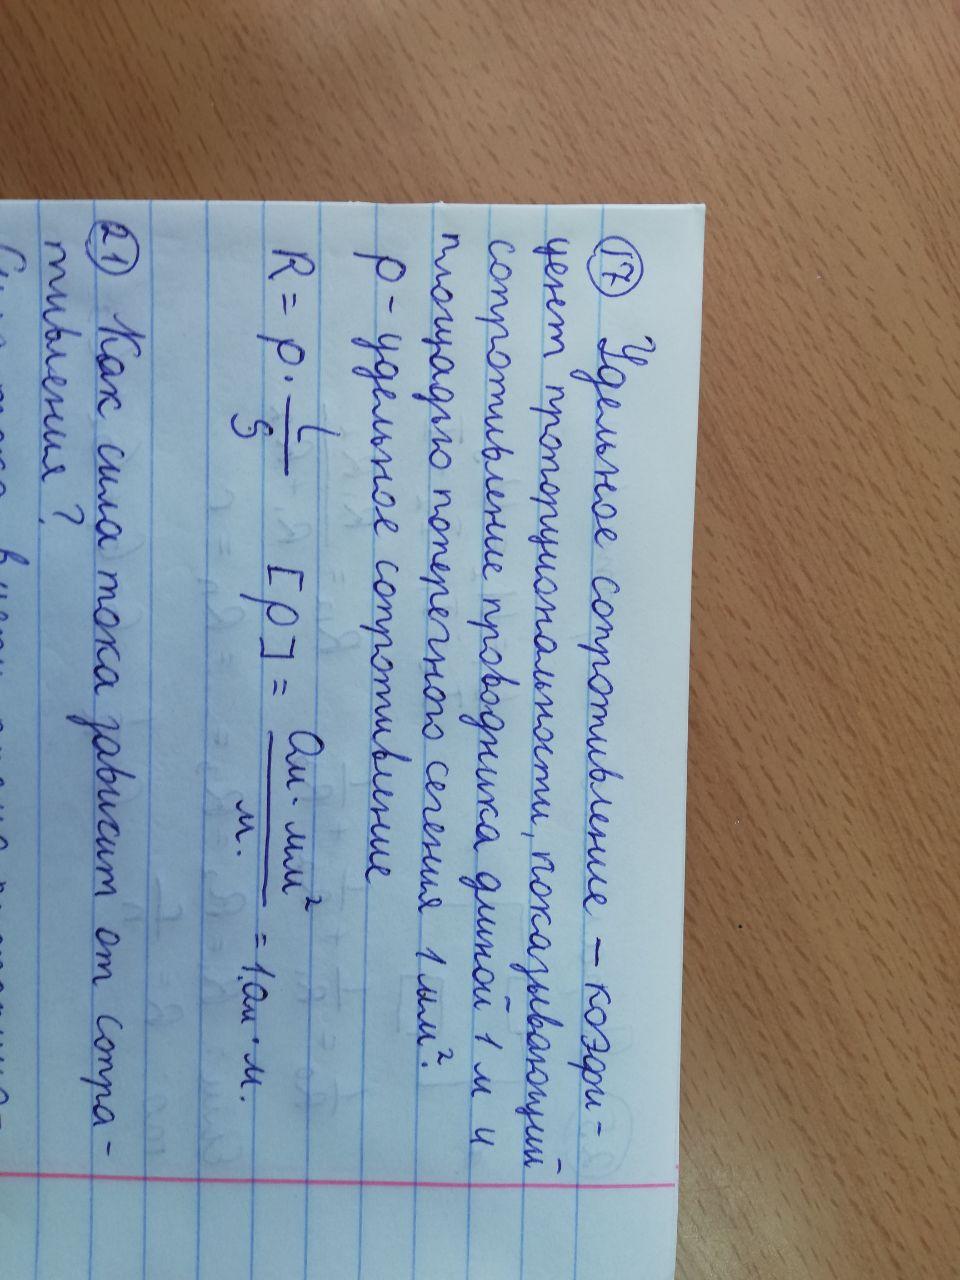 17 Удельное сопротивление – коэфи-
цент пропорциональности, показывающий
сопротивление проводника длиной 1 м и
площадью поперечного сечения 1 мм².
ρ – удельное сопротивление
R = ρ · l/S [ρ] = Ом · мм²/м. = 1.Ом · м.
21 Как сила тока зависит от сопра-
тивления?